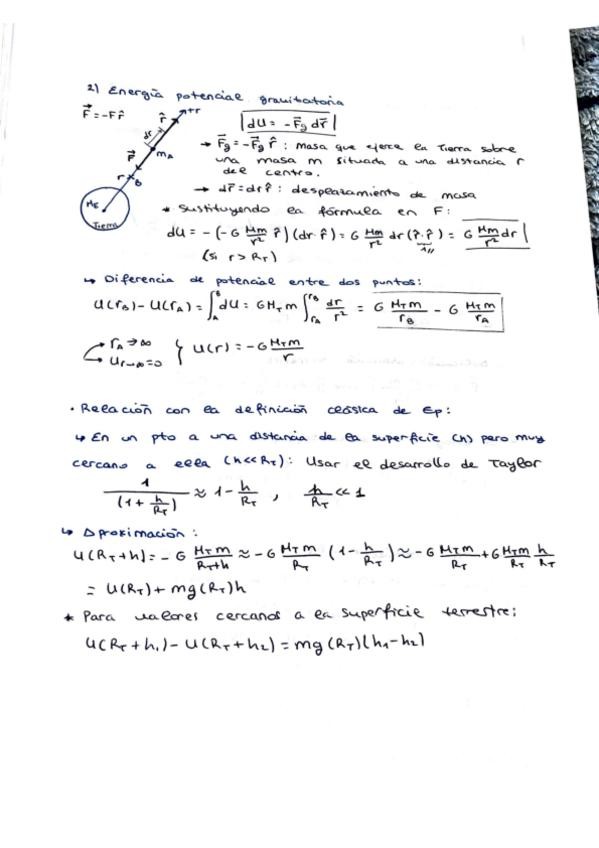 2) Energía potencial gravitatoria
F⃗ = -F r̂
r̂
+r
dr⃗
F⃗
m A
r
B
ME
Tierra
dU = -F⃗g dr⃗
→ F⃗g = -F⃗g r̂ : masa que ejerce la Tierra sobre
una masa m situada a una distancia r
del centro.
→ dr⃗ = dr r̂ : desplazamiento de masa
* Sustituyendo la fórmula en F:
dU = - (-G Mm/r² r̂) (dr · r̂) = G Mm/r² dr (r̂ · r̂) = G Mm/r² dr
1//
(si r > RT)
↳ Diferencia de potencial entre dos puntos:
U(rB) - U(rA) = ∫_A^B dU = GMTm ∫_rA^rB dr/r² = G MTm/rB - G MTm/rA
rA → ∞
U r→∞ = 0
{ U(r) = -G MTm/r
· Relación con la definición clásica de Ep:
↳ En un pto a una distancia de la superficie (h) pero muy
cercano a ella (h << RT): Usar el desarrollo de Taylor
1/(1 + h/RT) ≈ 1 - h/RT , h/RT << 1
↳ Aproximación:
U(RT + h) = -G MTm/RT+h ≈ -G MTm/RT (1 - h/RT) ≈ -G MTm/RT + G MTm/RT h/RT
= U(RT) + mg(RT)h
* Para valores cercanos a la superficie terrestre:
U(RT + h1) - U(RT + h2) = mg(RT)(h1 - h2)